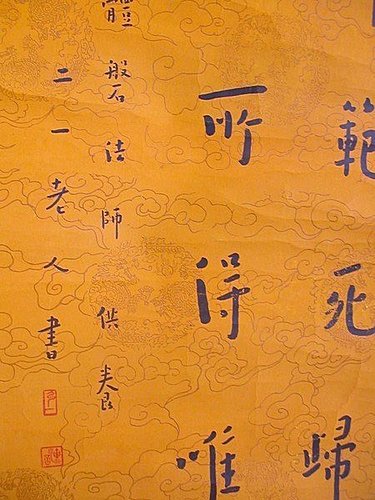 範死歸
所得唯
體磐法師供養
二一老人書